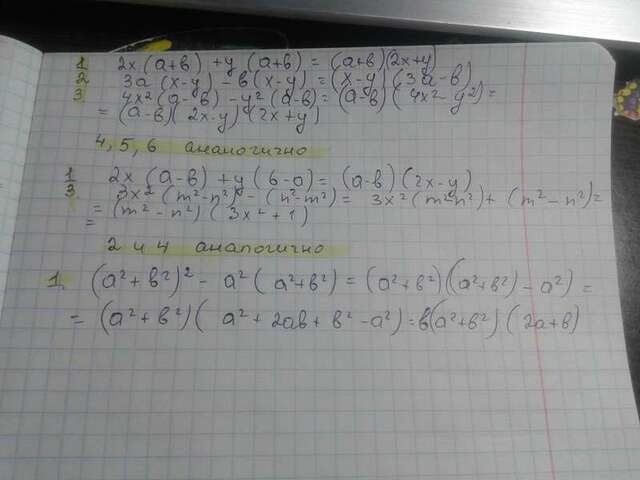 1 2x (a+в) + y (a+в) = (a+в)(2x+y)
2 3a (x-y) - в (x-y) = (x-y) (3a-в)
3. 4x² (a-в) - y² (a-в) = (a-в) (4x² - y²) =
= (a-в) (2x-y) (2x+y)
4, 5, 6 аналогично
1 2x (a-в) + y (в-a) = (a-в) (2x-y)
3 3x² (m²-n²) - (n²-m²) = 3x² (m²-n²) + (m²-n²) =
= (m²-n²) (3x²+1)
2 и 4 аналогично
1. (a²+в²)² - a² (a²+в²) = (a²+в²)((a²+в²) - a²) =
= (a²+в²) ( a² + 2aв + в² - a²) = в(a²+в²) (2a+в)